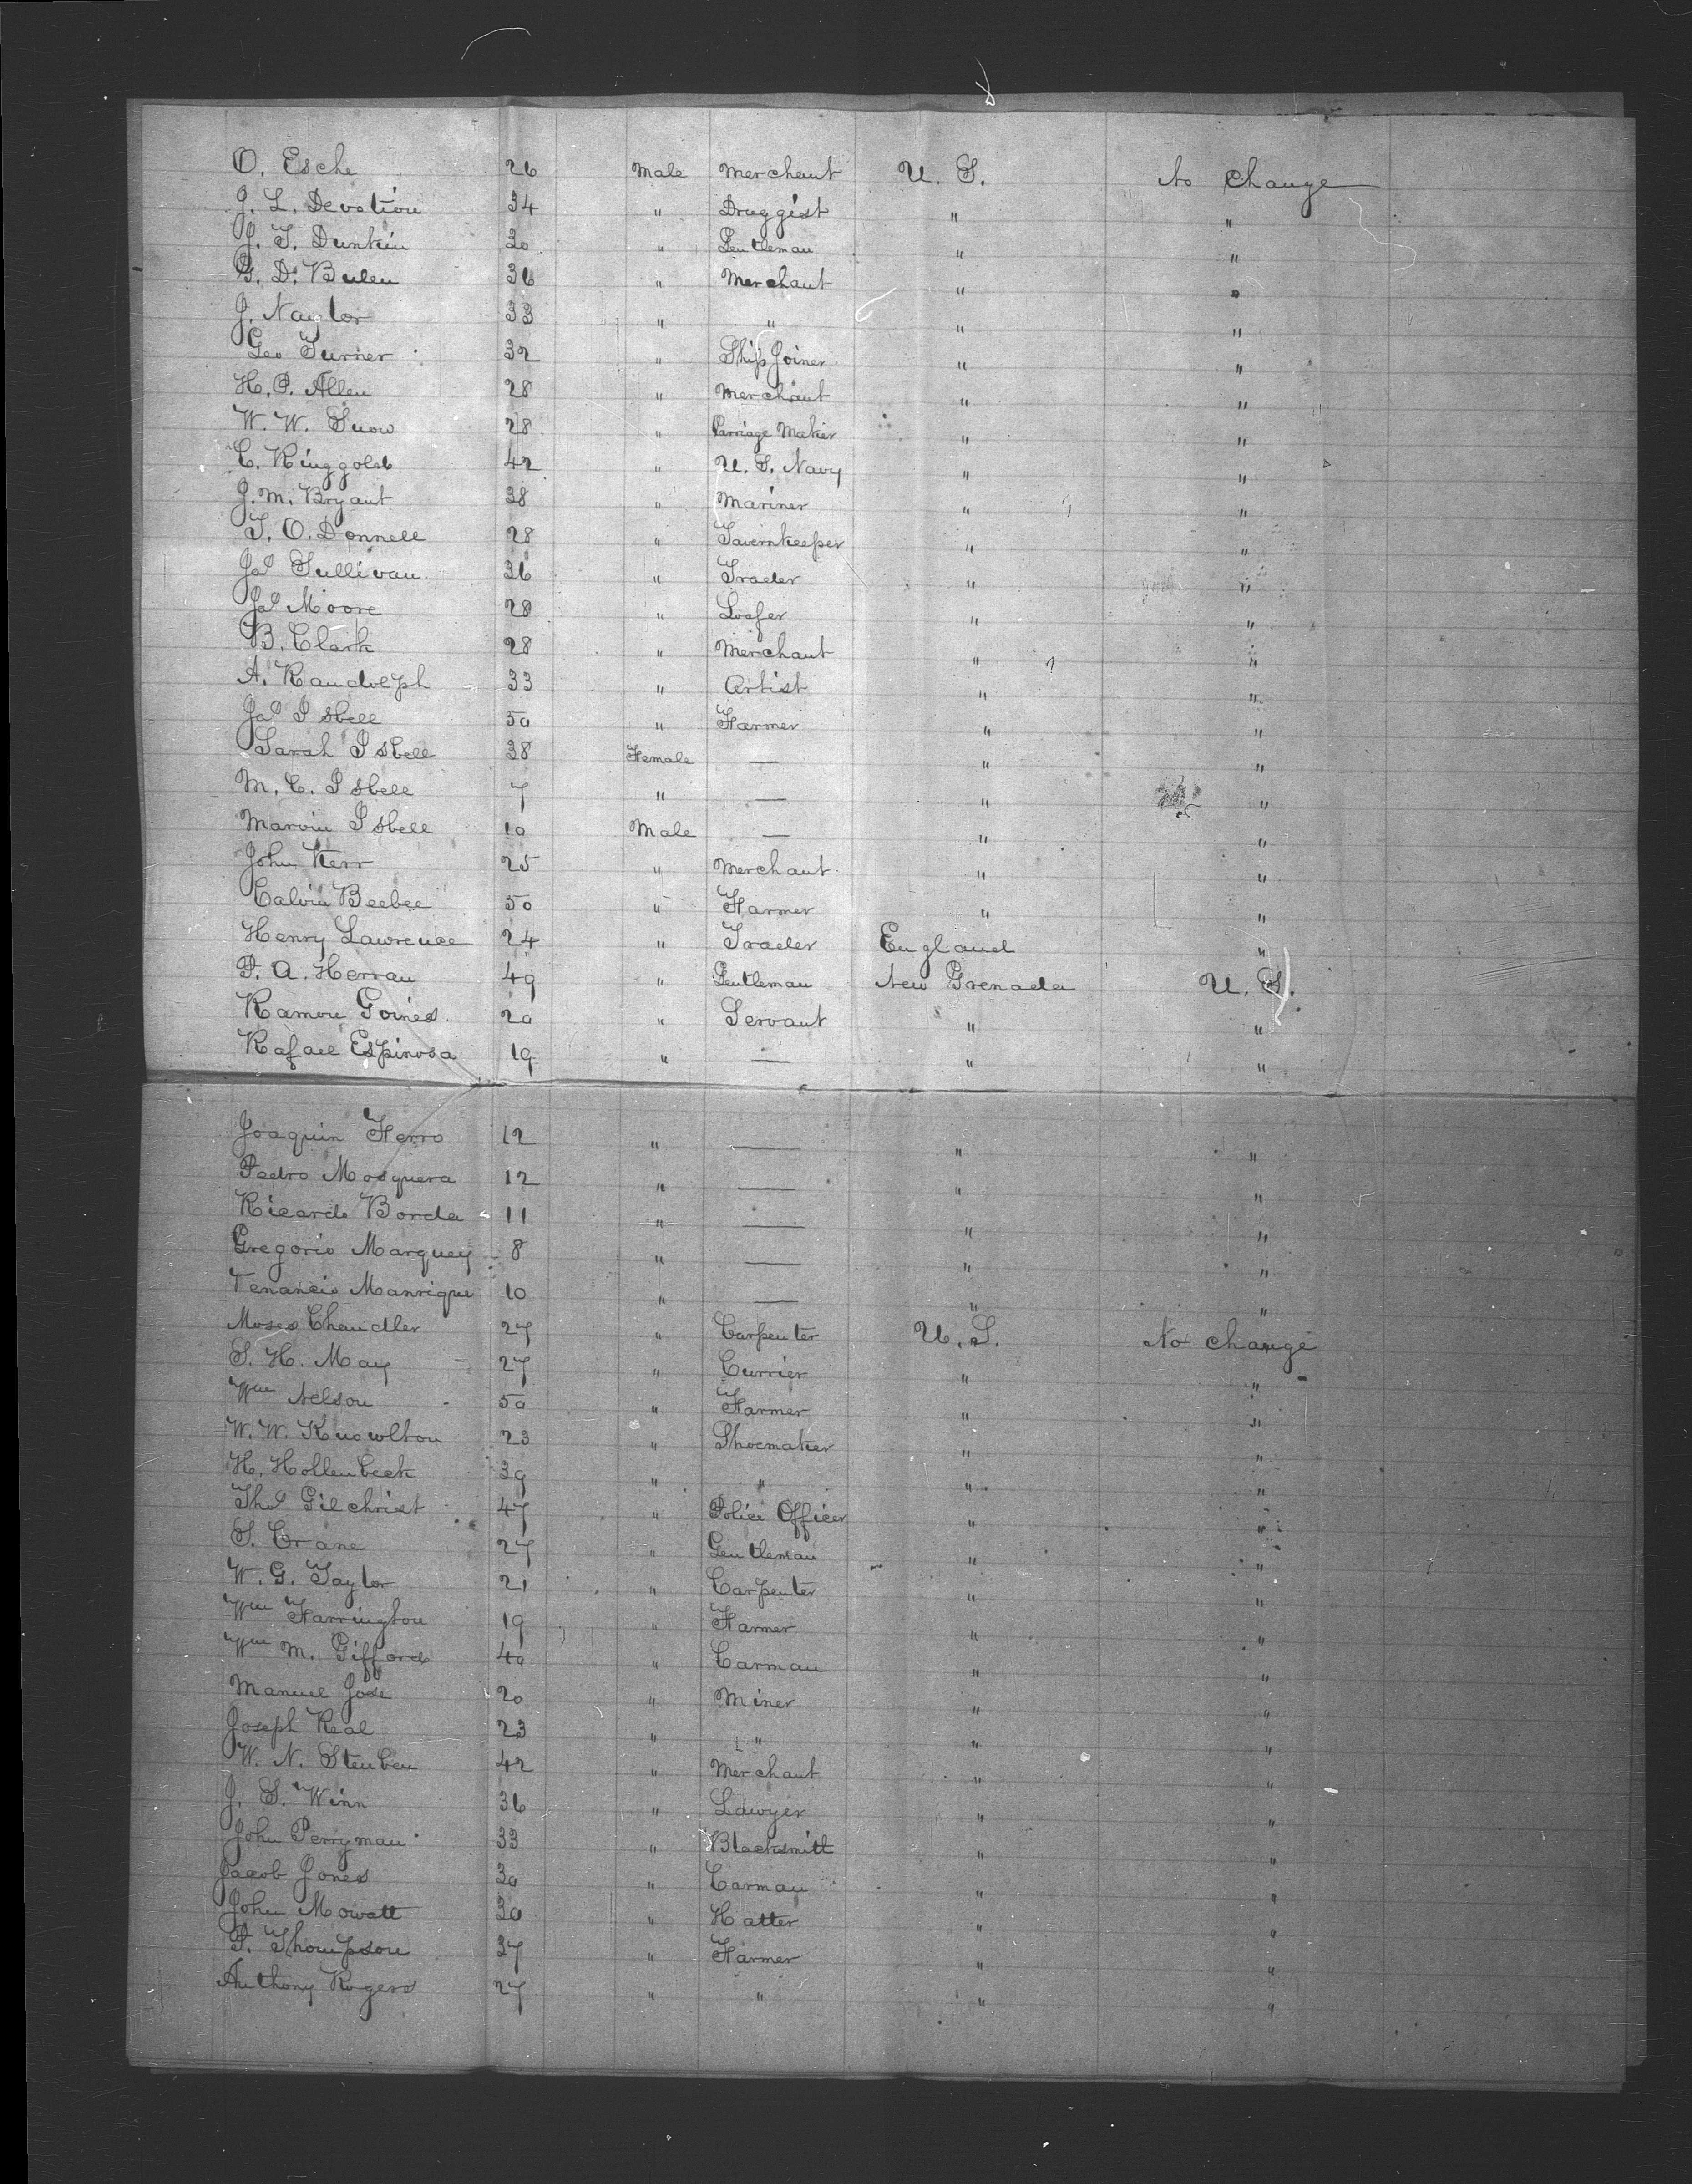 O. Esche 26 Male Merchant U. S. No Change
J. L. Devotion 34 " Druggist " "
J. T. Dunkin 30 " Gentleman " "
G. D. Bulen 36 " Merchant " "
J. Naylor 33 " " " "
Geo Turner 32 " Ship Joiner " "
H. P. Allen 28 " Merchant " "
W. W. Snow 28 " Carriage Maker " "
C. Ringgold 42 " U. S. Navy " "
J. M. Bryant 38 " Mariner " "
T. O. Donnell 28 " Tavernkeeper " "
Jas Sullivan 36 " Trader " "
Jas Moore 28 " Loafer " "
B. Clark 28 " Merchant " "
A. Randolph 33 " Artist " "
Jas Isbell 50 " Farmer " "
Sarah Isbell 38 Female — " "
M. C. Isbell 7 " — " "
Marvin Isbell 10 Male — " "
John Kerr 25 " Merchant " "
Calvin Beebee 50 " Farmer " "
Henry Lawrence 24 " Trader England "
P. A. Herran 49 " Gentleman New Grenada U. S.
Ramon Goines 20 " Servant " "
Rafael Espinosa 19 " — " "
Joaquin Ferro 12 " — " "
Pedro Mosquera 12 " — " "
Ricardo Borda 11 " — " "
Gregorio Marquez 8 " — " "
Tenancio Manrique 10 " — " "
Moses Chandler 27 " Carpenter U. S. No change
S. H. May 27 " Currier " "
Wm Nelson 50 " Farmer " "
W. W. Knowlton 23 " Shoemaker " "
H. Hollenbeck 39 " " " "
Thos Gilchrist 47 " Police Officer " "
S. Crane 27 " Gentleman " "
W. G. Taylor 21 " Carpenter " "
Wm Farrington 19 " Farmer " "
Wm M. Gifford 40 " Carman " "
Manuel Jose 20 " Miner " "
Joseph Real 23 " " " "
W. N. Steuben 42 " Merchant " "
J. S. Winn 36 " Lawyer " "
John Perryman 33 " Blacksmith " "
Jacob Jones 30 " Carman " "
John Mowatt 30 " Hatter " "
P. Thompson 37 " Farmer " "
Anthony Rogers 27 " " " "